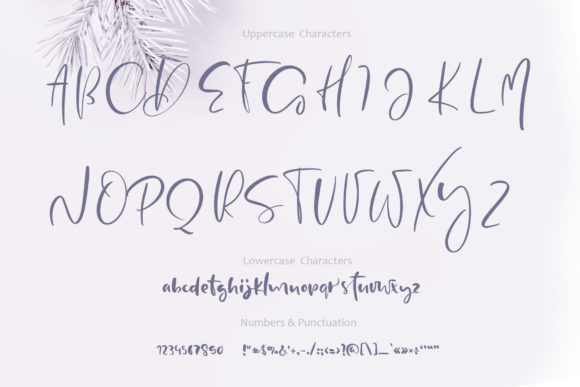 Uppercase Characters
ABCDEFGHIJKLM
NOPQRSTUVWXYZ
Lowercase Characters
abcdefghijklmnopqrstuvwxyz
Numbers & Punctuation
1234567890 !"#$%&'+,-./:;<=>?@[\]_`«»×÷‘’“”